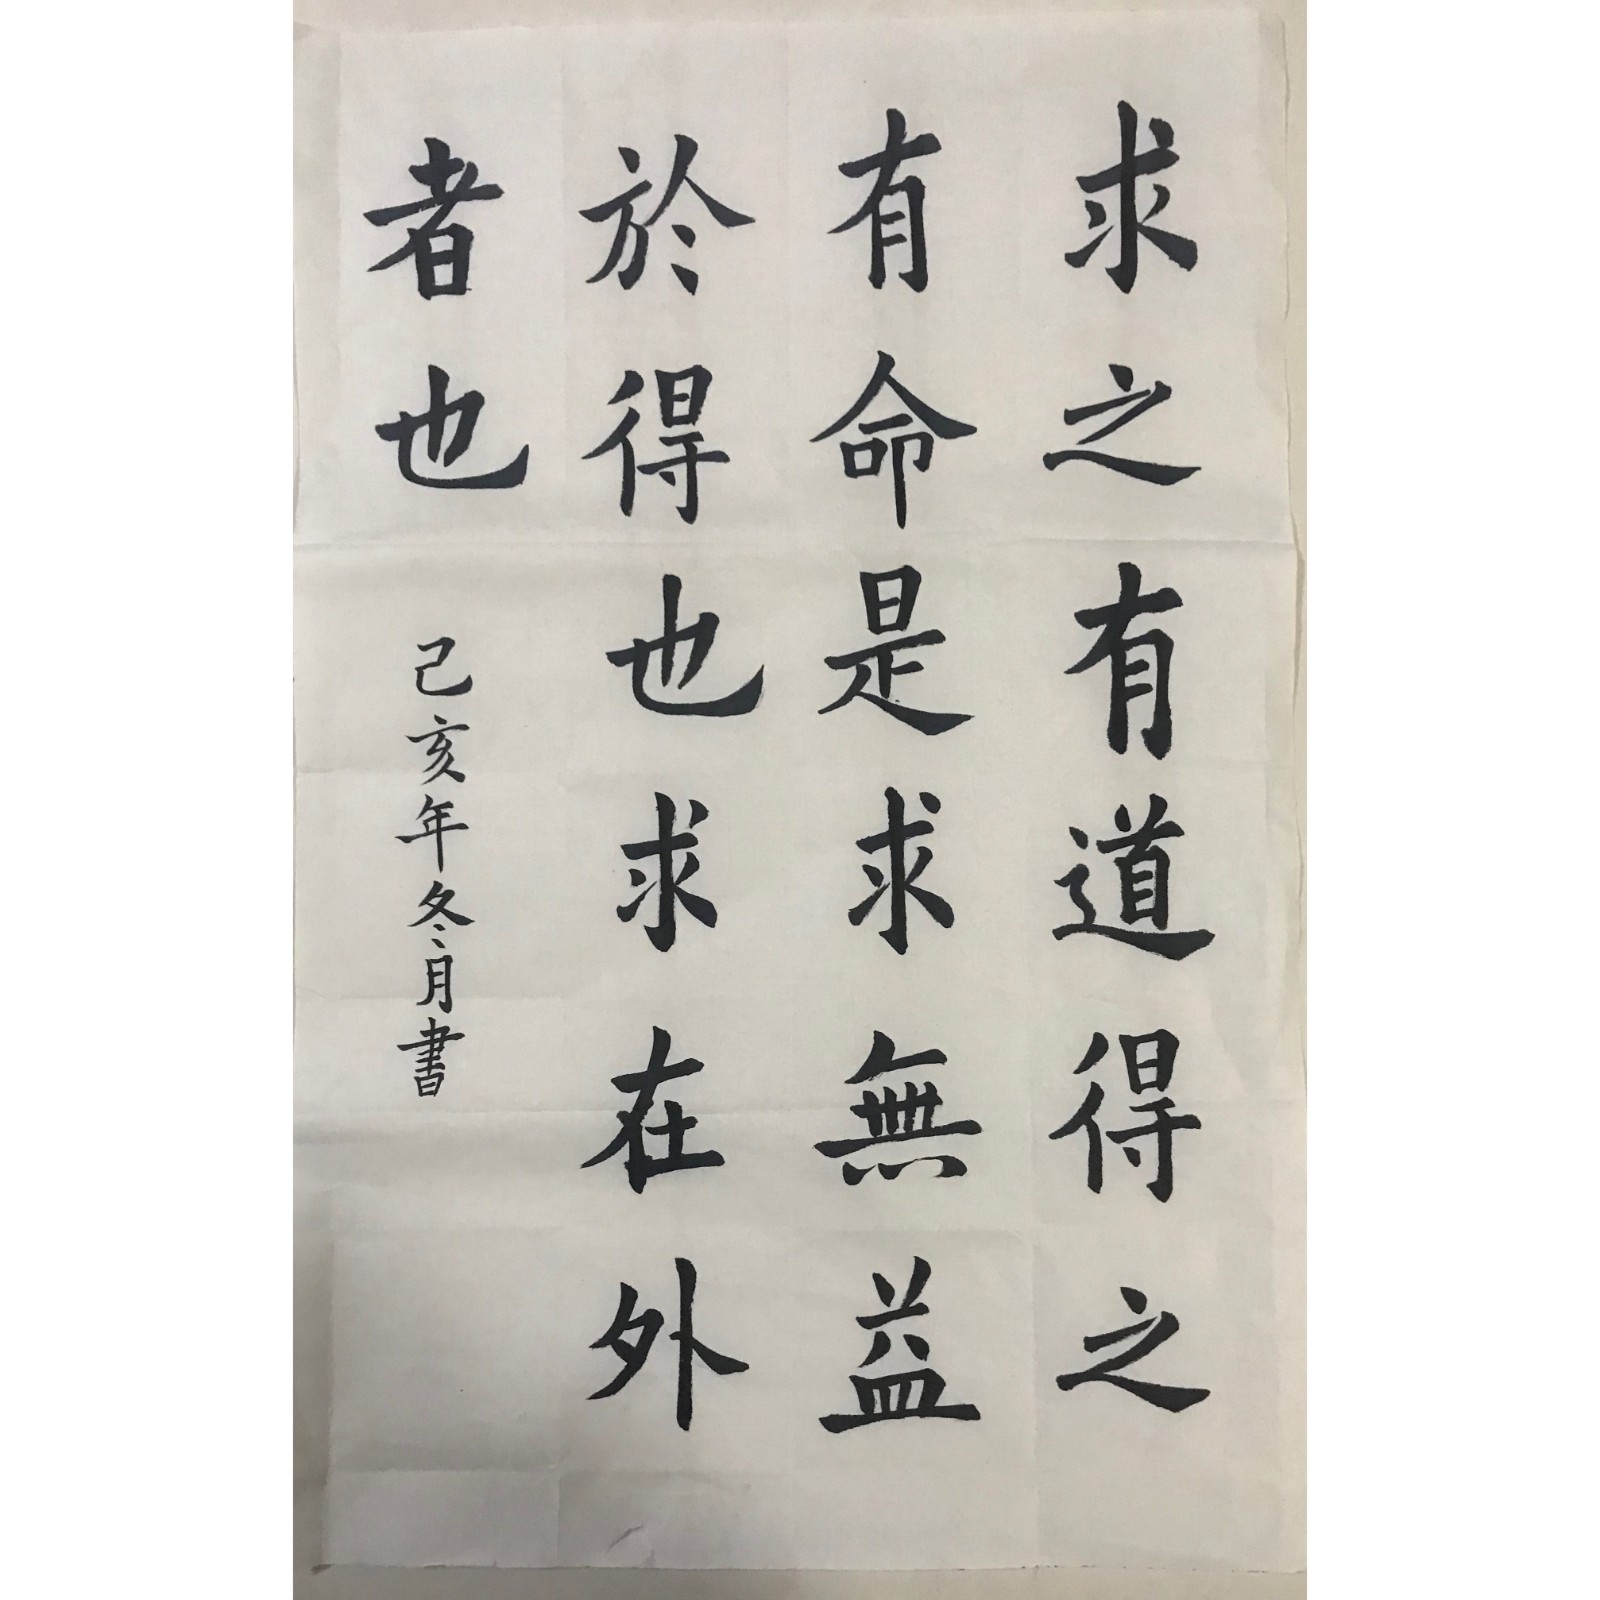 求之有道得之
有命是求無益
於得也求在外
者也
己亥年冬月書